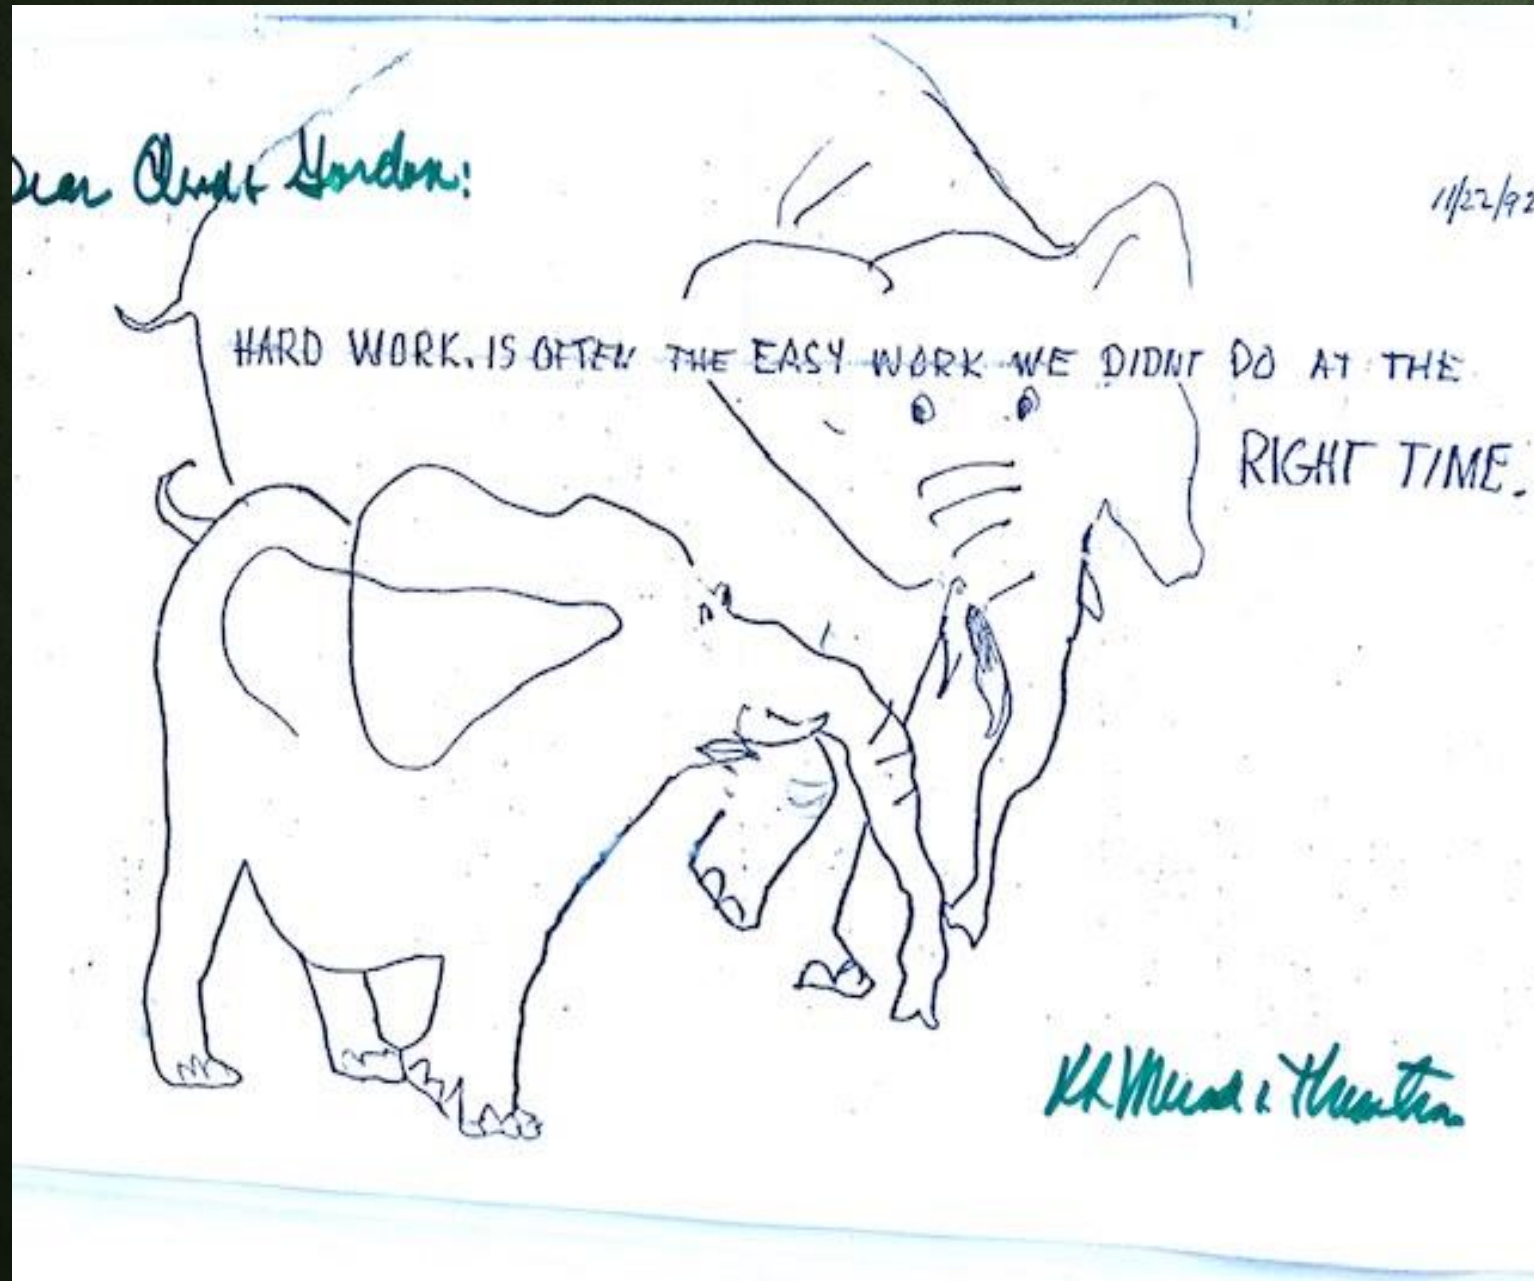 Dear Gordon:
11/22/92
HARD WORK. IS OFTEN THE EASY WORK WE DIDNT DO AT THE
RIGHT TIME.